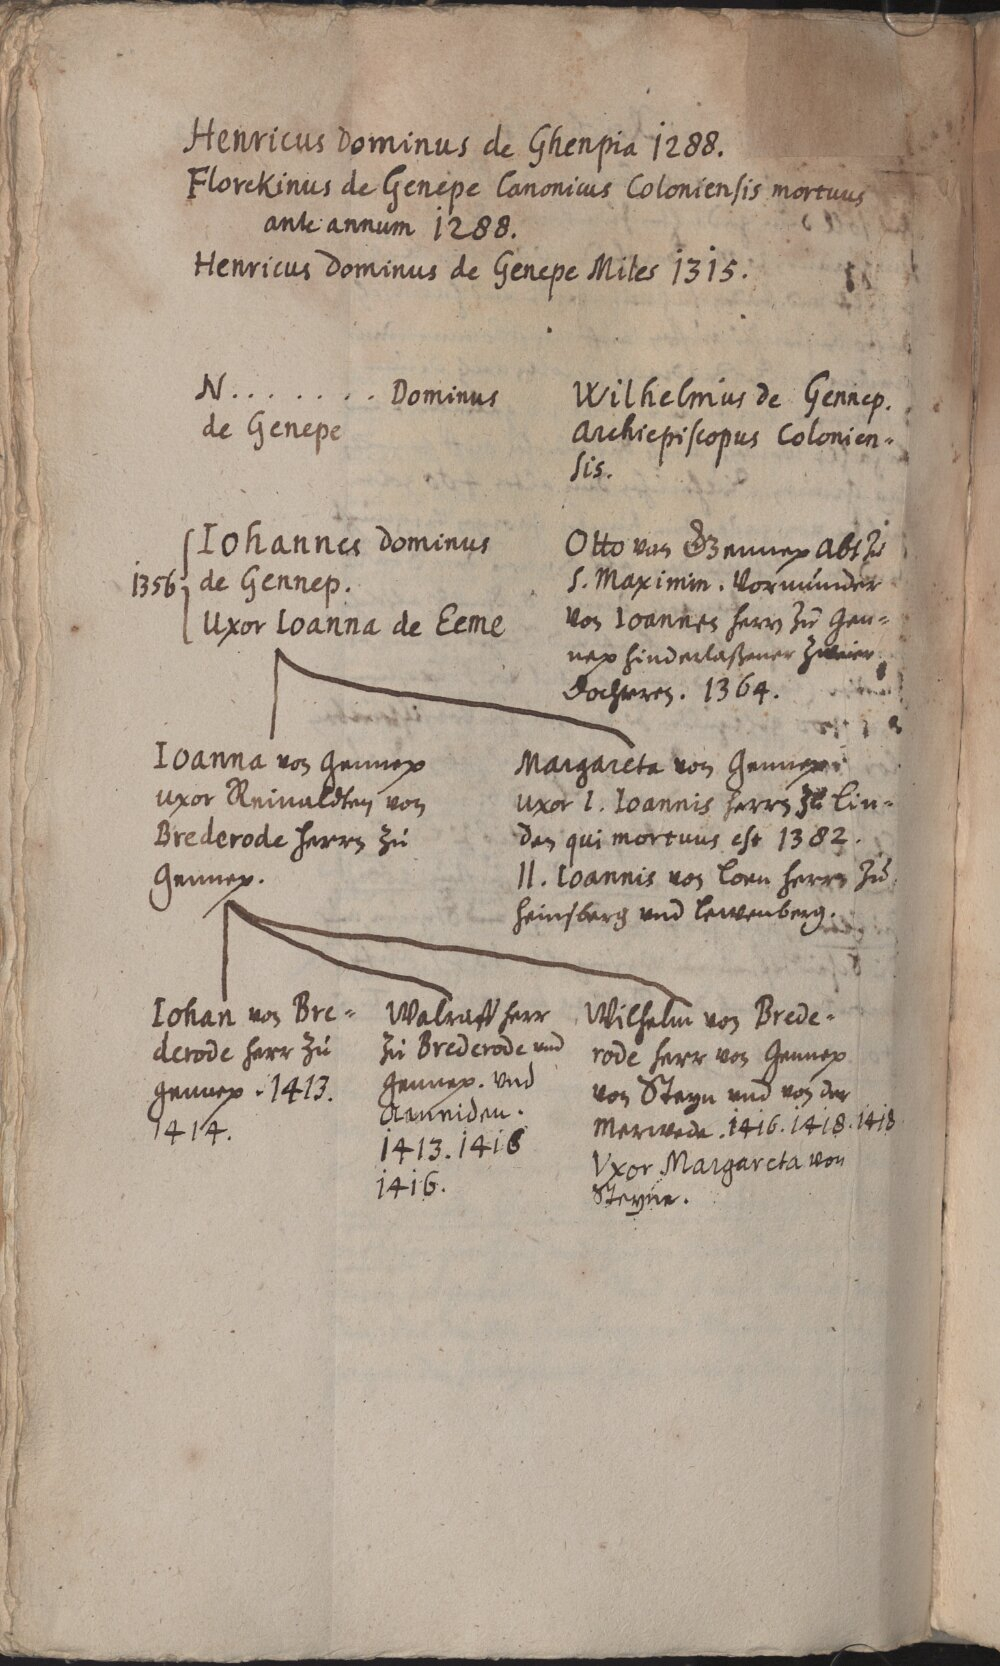 Henricus Dominus de Ghenpia 1288.
Florekinus de Genepe Canonicus Coloniensis mortuus
ante annum 1288.
Henricus Dominus de Genepe Miles 1315.
N. . . . . . . . Dominus
de Genepe
Wilhelmus de Gennep.
Archiepiscopus Colonien-
sis.
1356
Iohannes Dominus
de Gennep.
Uxor Ioanna de Eeme
Otto von Gennep Abt zu
S. Maximin. Vormunder
von Ioannes herrn zu Gen-
nep hinderlaßener zweier
dochteren. 1364.
Ioanna von Gennep
uxor Reinaldten von
Brederode herrn zu
Gennep.
Margareta von Gennep
uxor I. Ioannis herrn zu Lin-
den qui mortuus est 1382.
II. Ioannis von Loen herrn zu
heinsberg und Lewenberg.
Iohan von Bre-
derode herr zu
gennep. 1413.
1414.
Walraff herr
zu Brederode und
gennep. und
1413. 1418
1416.
Wilhelm von Brede-
rode herr von Gennep
von Steyn und von der
Merwede. 1416. 1418. 1418
Vxor Margareta von
Steyne.